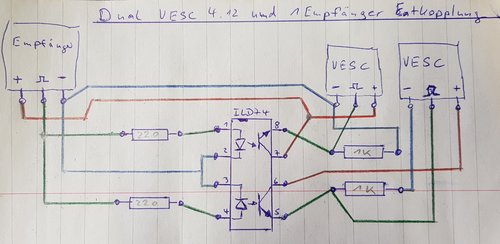 Dual VESC 4.12 und 1 Empfänger Entkopplung
Empfänger
+ ⎍ −
VESC
− ⎍ +
VESC
− ⎍ +
ILD74
220
220
1 8
2 7
3 6
4 5
1K
1K